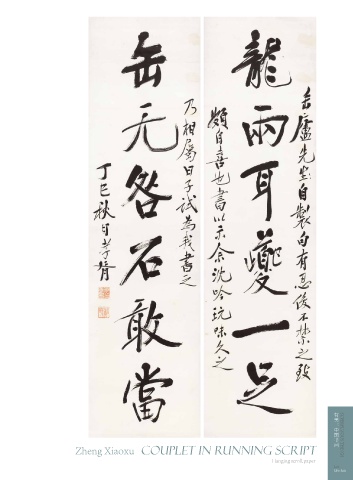 龍兩耳夔一足
缶廬先生自製句有忍俊不禁之致
頗自喜也書以示余沈吟玩味久之
缶无咎石敢當
乃相屬曰子試為我書之
丁巳秋日孝胥
Zheng Xiaoxu COUPLET IN RUNNING SCRIPT
Hanging scroll, paper